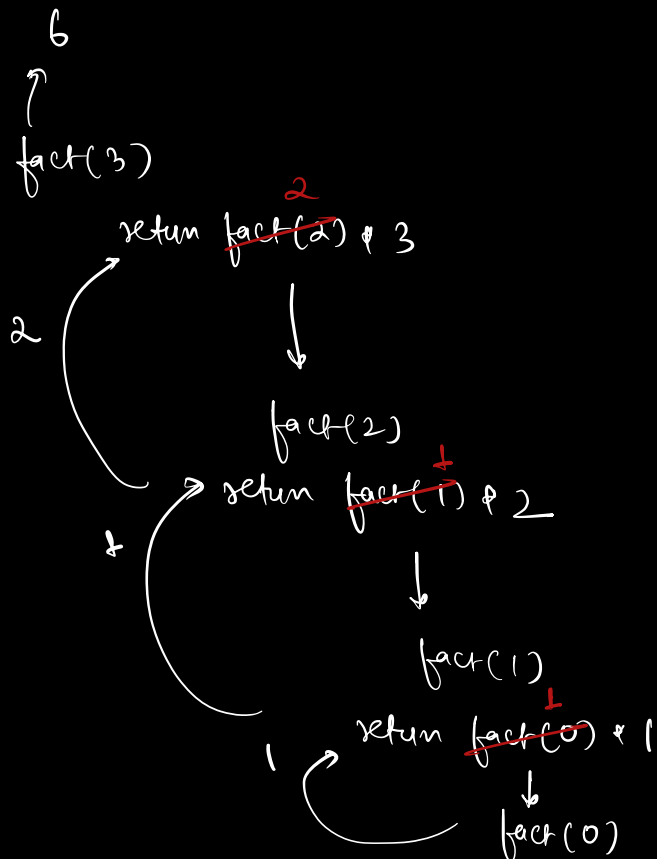 6
fact(3)
2
return fact(2) * 3
2
fact(2)
1
return fact(1) * 2
1
fact(1)
1
return fact(0) * 1
1
fact(0)